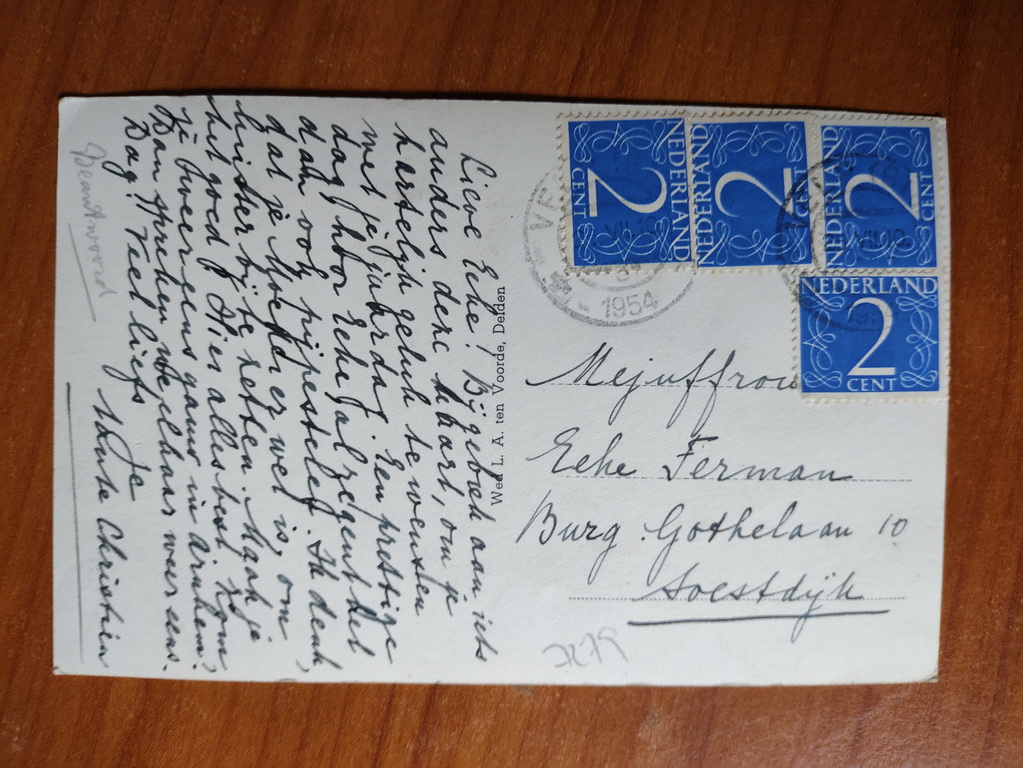 Lieve Eehe! Bijgebrek aan iets
anders deze kaart, om je
hartelijk geluk te wensen
met je jaardag. Een prettige
dag hoor Eehe, al regent het
dan ook pijpestelen. Ik denk,
dat je Moeder er wel is, om
luister bij te zetten. Maak je
het goed? Hier alles best. Kom
jij bovenens gauw in Arnhem?
Dan spreken we elkaar weer eens.
Dag! Veel liefs
Je
Tante Christien
Beantwoord
Wed. L. A. ten Voorde, Delden
NEDERLAND
2
CENT
NEDERLAND
2
CENT
NEDERLAND
2
CENT
NEDERLAND
2
CENT
1954
Mejuffrou
Eehe Ferman
Burg. Gothelaan 10
Soestdijk